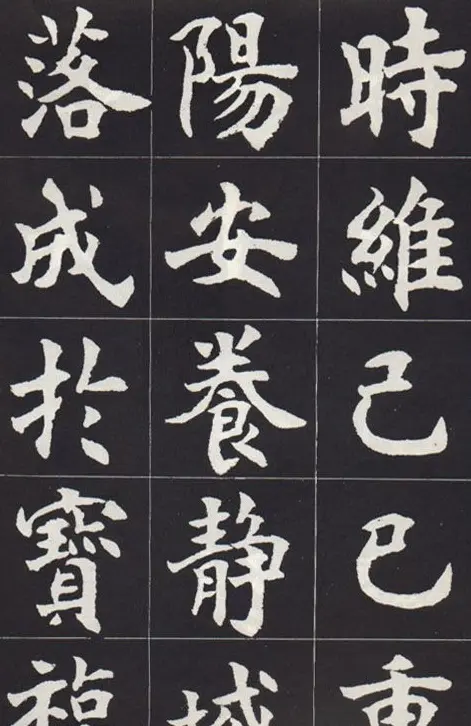 時維己巳重
陽安養静城
落成於寳禎